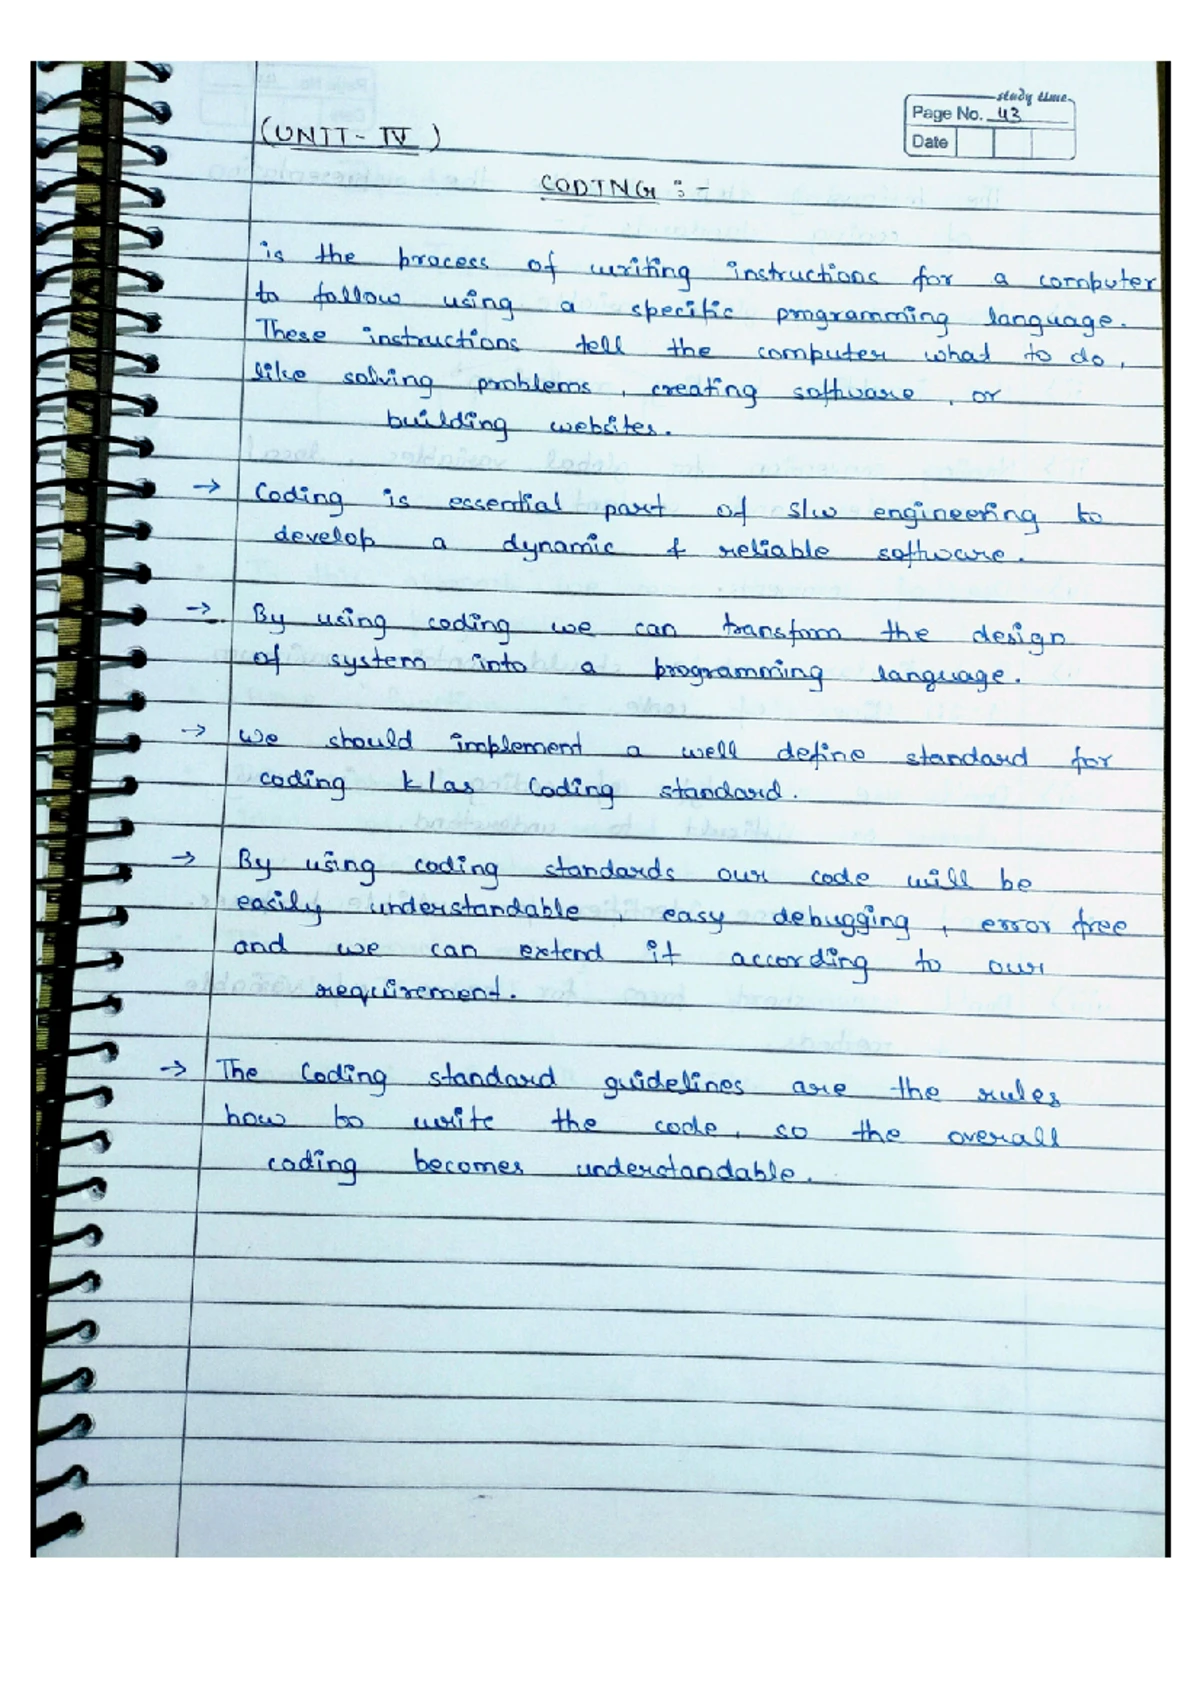 study time
Page No. 43
Date
(UNIT - IV)
CODING :-
is the process of writing instructions for a computer
to follow using a specific programming language.
These instructions tell the computer what to do,
like solving problems, creating software, or
building websites.
→ Coding is essential part of s/w engineering to
develop a dynamic & reliable software.
→ By using coding we can transform the design
of system into a programming language.
→ we should implement a well define standard for
coding k/as Coding standard.
→ By using coding standards our code will be
easily understandable, easy debugging, error free
and we can extend it according to our
requirement.
→ The Coding standard guidelines are the rules
how to write the code, so the overall
coding becomes understandable.